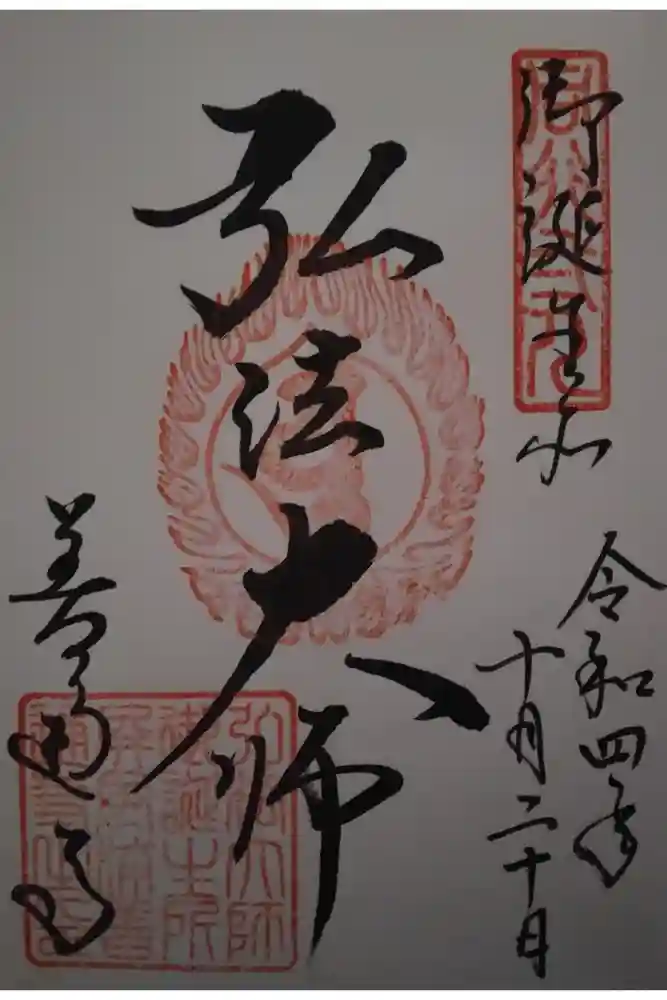 御誕生所
令和四年
十月二十日
弘法大師
善通寺
弘法大師
御誕生所